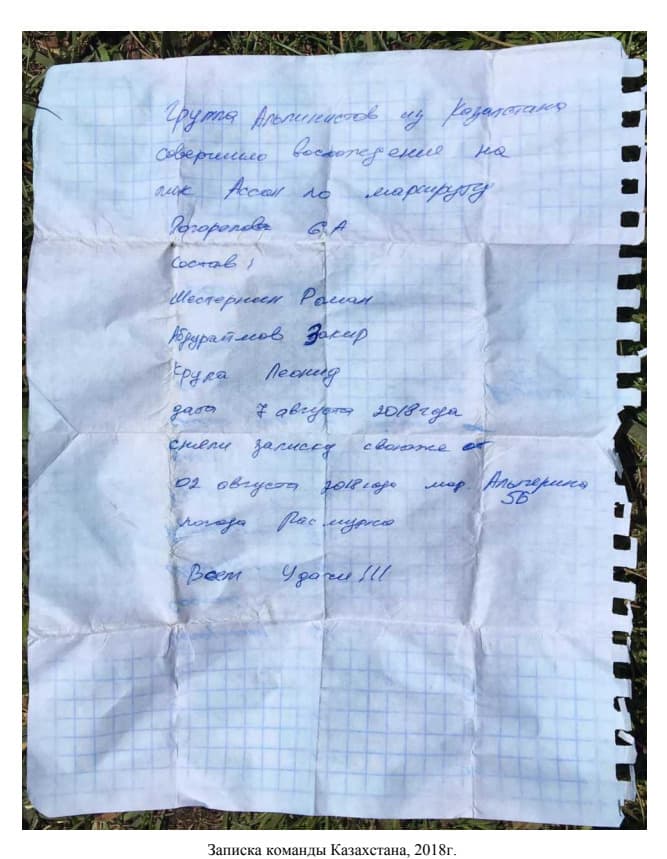 Группа Альпинистов из Казахстана
совершило восхождение на
пик Ассан по маршруту
6А
Состав:
Шестернин Роман
Абдураимов Закир
Крупа Леонид
дата 7 августа 2018 года
сняли записку свою же от
02 августа 2018 года мар. Альперина
5Б
погода Пасмурно
Всем Удачи!!!
Записка команды Казахстана, 2018г.